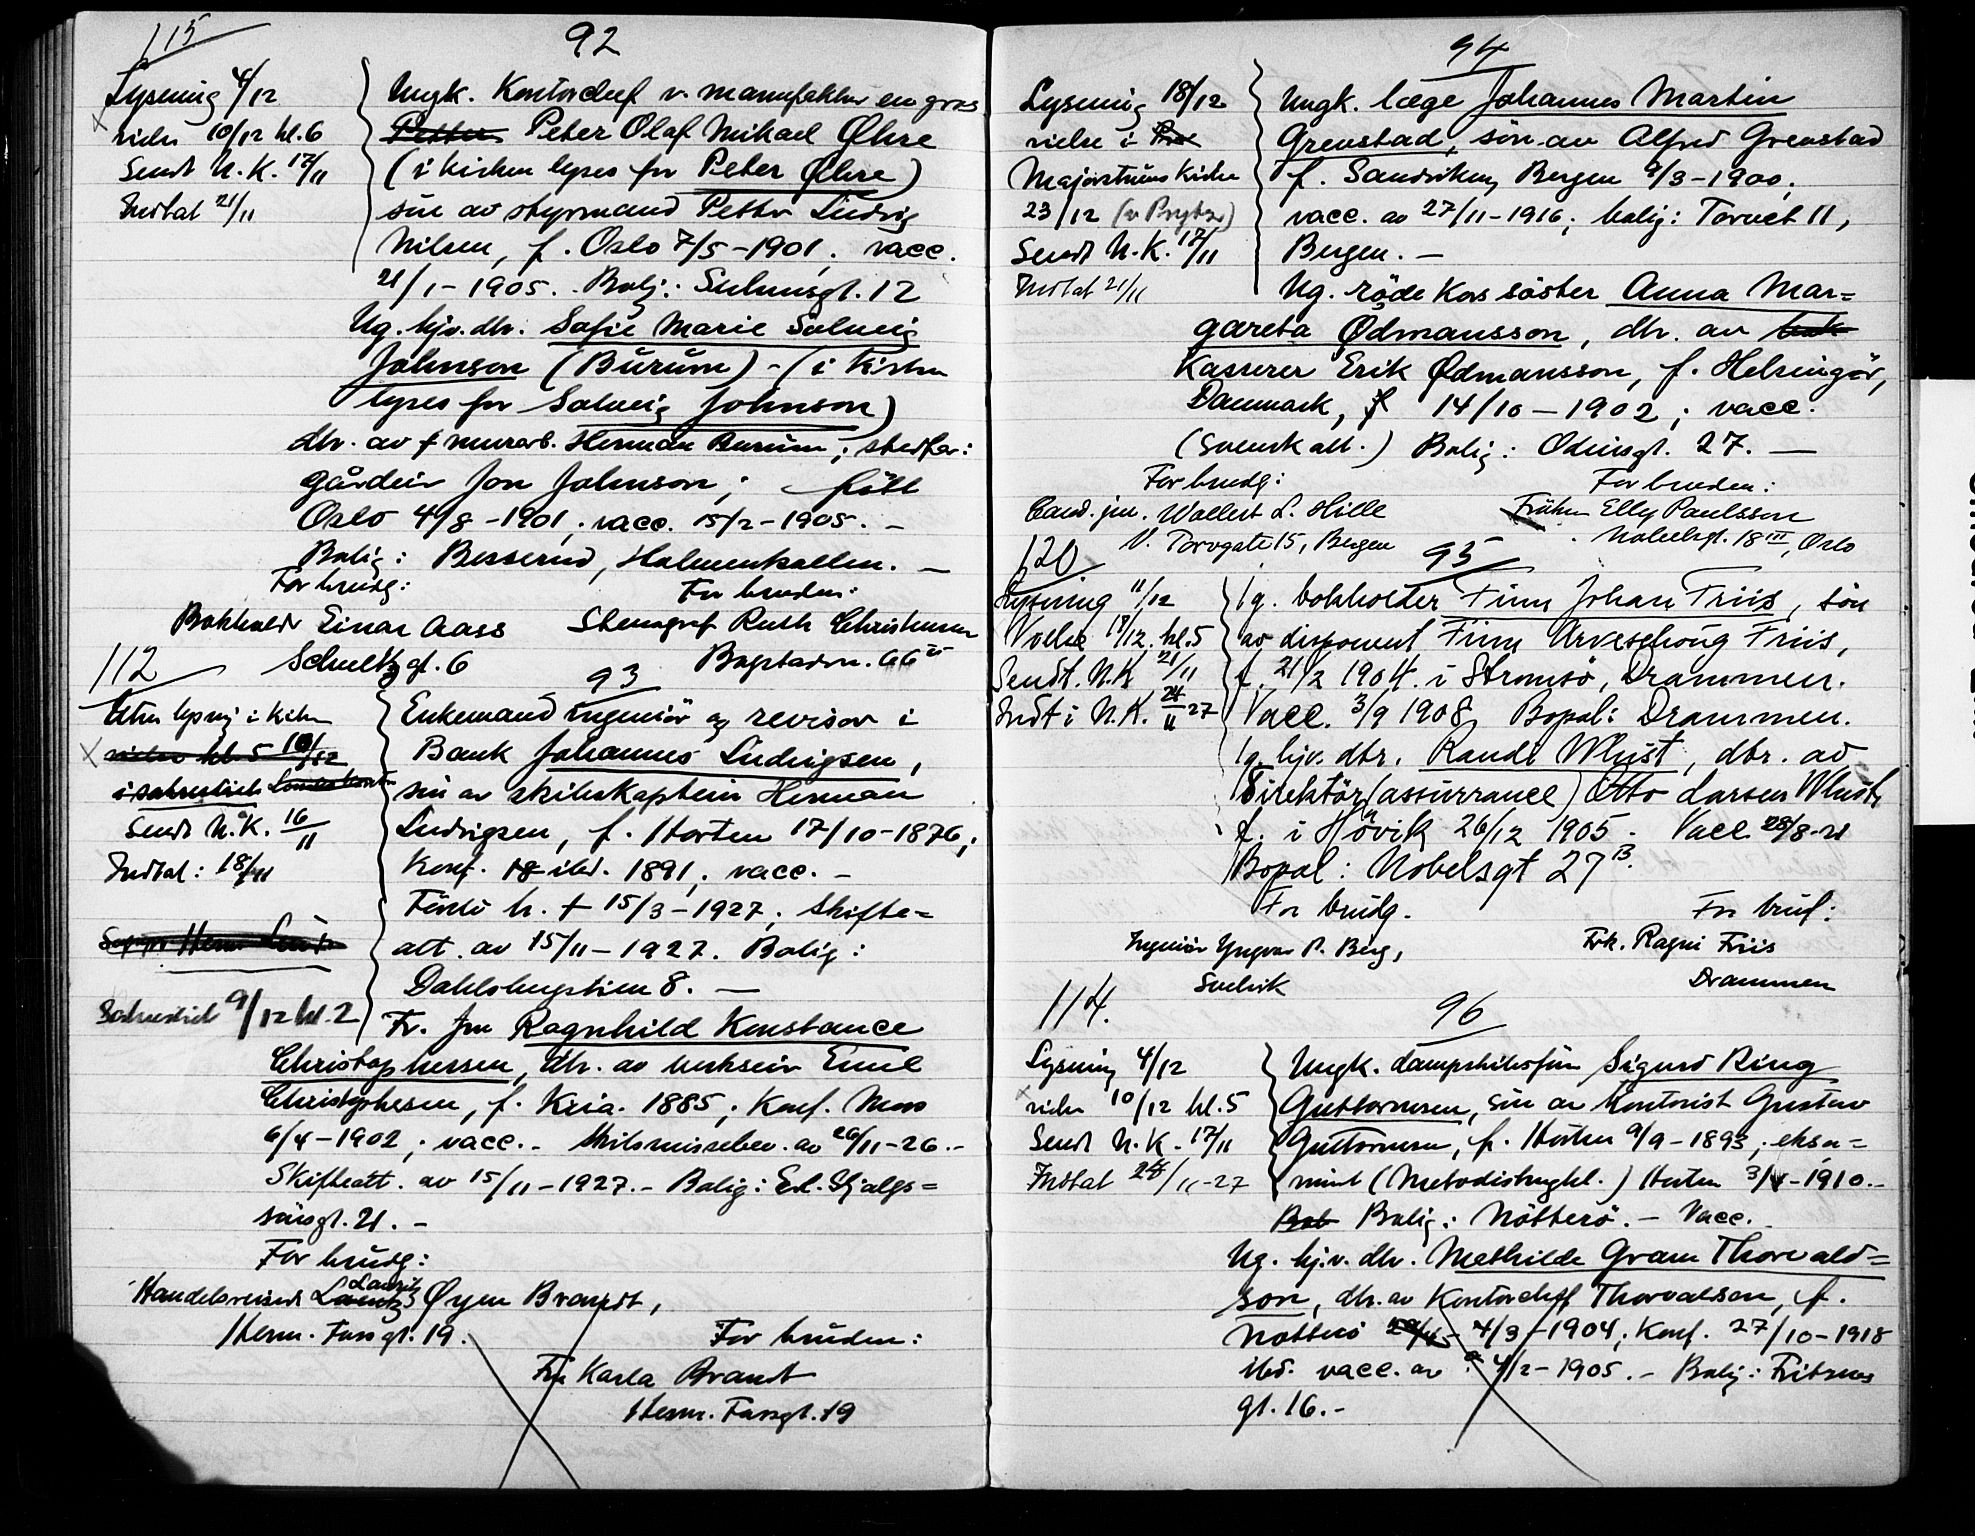 115
92
Lysning 4/12
vies 10/12 kl. 6
Sendt N.K. 17/11
Indtat 21/11
Ungk. Kontorchef v. manufaktur en gros
Petter Peter Olaf Mikael Øhre
(i kirken lyses for Peter Øhre)
søn av styrmand Petter Ludvig
Nilsen, f. Oslo 7/5-1901, vacc.
21/1-1905. Bolig: Suhmsgt. 12
Ug. hjv. dtr. Sofie Marie Solveig
Johnson (Burum) - (i kirken
lyses for Solveig Johnson)
dtr. av f murarb. Herman Burum; stedfar:
gårdeier Jon Johnson; født
Oslo 4/8-1901, vacc. 15/2-1905. -
Bolig: Besserud, Holmenkollen. -
For brudg:
For bruden:
Bokholder Einar Aass
Schultzgt. 6
Stenograf Ruth Christensen
Bogstadvn. 66
112
93
Uten lysning i kirken
vies kl. 5 10/12
i sakristiet
Sendt N.K. 16/11
Indtat: 18/11
Sakristiet 9/12 kl. 2
Enkemand ingeniør og revisor i
Bank Johannes Ludvigsen,
søn av skibskaptein Herman
Ludvigsen, f. Horten 17/10-1876,
Konf. 18 ibd. 1891, vacc. -
Første h. + 15/3-1927, skifte=
att. av 15/11-1927. Bolig:
Dahlsbergstien 8. -
Fr. fru Ragnhild Konstance
Christophersen, dtr. av verkseier Emil
Christophersen, f. Kria. 1885; Konf. Moss
6/4-1902; vacc. - Skilsmissebev. av 26/11-26. -
Skifteatt. av 15/11-1927. - Bolig: Erl. Skjalgs=
sønsgt. 21. -
For brudg:
Handelsreisende Lauritz Øyen Brandt,
Herm. Fossgt. 19.
For bruden:
Fru Karla Brandt
Herm. Fossgt. 19
94
Lysning 18/12
vielse i
Majorstuens Kirke
23/12 (v Prytz)
Sendt N.K. 17/11
Indtat 21/11
Ungk. læge Johannes Martin
Grenstad, søn av Alfred Grenstad
f. Sandviken, Bergen 9/3-1900,
vacc. av 27/11-1916; bolig: Torvet 11,
Bergen. -
Ug. røde Kors søster Anna Mar=
gareta Ødmansson, dtr. av
Kasserer Erik Ødmansson, f. Helsingør,
Danmark, f 14/10-1902; vacc.
(svensk att.) Bolig: Odinsgt. 27. -
For brudg:
For bruden:
Cand. jur. Wollert L. Hille
V. Torvgate 15, Bergen
Frøken Elly Paulsson
Nobelsgt. 18 III, Oslo
120
95
Lysning 11/12
Vielse 17/12. kl. 5
Sendt. N.K 21/11
Indt i N.K. 24/11 27
Ug. bokholder Finn Johan Friis, søn
av disponent Finn Arveschoug Friis,
f. 21/2 1904. i Strømsø, Drammen.
Vacc. 3/9 1908, Bopæl: Drammen.
Ug. hjv. dtr. Randi Whist, dtr. av
Direktør (assurrance) Otto Larsen Whist
f. i Høvik 26/12 1905. Vacc. 28/8-21
Bopæl: Nobelsgt 27 B.
For brudg.
For brud:
Ingeniør Yngvar P. Berg,
Svelvik
Frk. Ragni Friis
Drammen
114.
96
Lysning 4/12
vies 10/12 kl. 5
Sendt N.K. 17/11
Indtat 24/11-27
Ungk. dampskibsfører Sigurd Ring
Guttormsen, søn av Kontorist Gustav
Guttormsen, f. Horten 9/9-1893, eksa=
mint (Metodistmgh.) Horten 3/4-1910. -
Bolig: Nøtterø. - Vacc.
Ug. hj.v. dtr. Mathilde Gram Thorvald=
son, dtr. av Kontorchef Thorvaldson, f.
Nøtterø 4/3-1904; Konf. 27/10-1918
ibd. vacc. av 4/2-1905. - Bolig: Fritzners
gt. 16. -